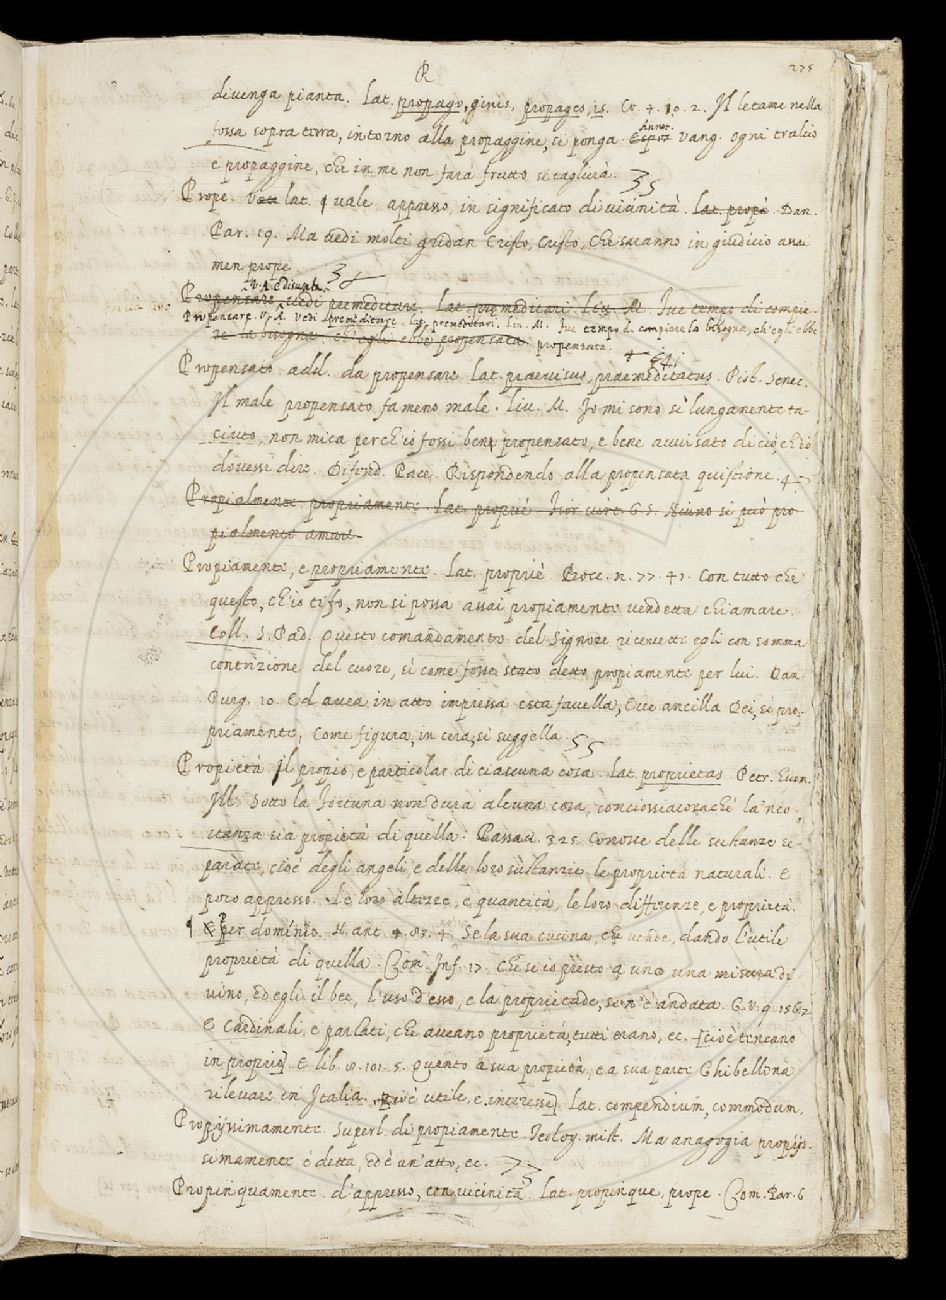 P
275
divenga pianta. Lat. propago, ginis, propages, is. Cr. 4. 10. 2. Il letame nella
fossa sopra terra, intorno alla propaggine, si ponga. Annot. Vang. Ogni tralcio
e propaggine, che in me non farà frutto si taglierà.
Prope. lat. vale appresso, in significato di vicinità. Lat. prope. Dan.
Par. 19. Ma vedi molti gridan Cristo, Cristo, Che saranno in giudicio assai
men prope
Propensare. vedi premeditare. Lat. praemeditari. Liv. M. Fue tempo di compie-
Propensare. V. A. vedi premeditare. lat. premeditari. Liv. M. Fue tempo di compiere la bisogna, ch'egli ebbe
re la bisogna ch'egli ebbe propensata propensata.
Propensato add. da propensare Lat. praevisus, praemeditatus. Pist. Senec.
Il male propensato fa meno male. Liv. M. Io mi sono sì lungamente ta-
ciuto, non mica perch'io fossi bene propensato, e bene avvisato di ciò, ch'io
dovessi dire. Difend. Pace. Rispondendo alla propensata quistione.
Propialmente propriamente. Lat. proprié Fior. virt. G. S. Niuno si può pro
pialmente amare.
Propiamente, e propriamente. Lat. proprié Bocc. n. 77. 41. Con tutto che
questo, ch'io ti fo, non si possa assai propiamente vendetta chiamare.
Coll. S. Pad. Questo comandamento del Signore ricevette egli con somma
contrizione del cuore, sì come fosse stato detto propiamente per lui. Dan
Purg. 10. Ed avea in atto impressa esta favella, Ecce ancilla Dei, sì pro-
priamente, Come figura, in cera, si suggella.
Propietà Il propio, e particolar di ciascuna cosa. Lat. proprietas. Petr. Huom.
Ill. Sotto la Fortuna non dura alcuna cosa, conciossiacosaché la
stanza sia propietà di quella. Passav. 325. Conosce delle sustanze se-
parate, cioé degli angeli, e delle loro sustanzie, le proprietà naturali. E
poco appresso. Le loro altezze, e quantità, le loro differenze, e proprietà.
¶ per dominio. N. ant. 4. 85. 4. Se la sua cucina, che vende, dando l'utile
proprietà di quella. Com. Inf. 17. Che se io presto a uno una misura di
vino, ed egli il bee, l'uso d'esso, e la proprietade, se n'è andata. G. V. 9. 156. 2
E Cardinali, e parlati, che aveano proprietà, tutti erano, ec. [cioè teneano
in proprio] E lib. 10. 101. 5. Quanto a sua propietà, e a sua parte Ghibellina
rilevare in Italia. [cioè utile, e interesse]. Lat. compendium, commodum.
Propijssimamente. Superl. di propiamente. Teolog. mist. Ma anagogia propijs-
simamente é detta, ed é un'atto, ec.
Propinquamente. d'appresso, con vicinità. Lat. propinque, prope. Com. Par. 6